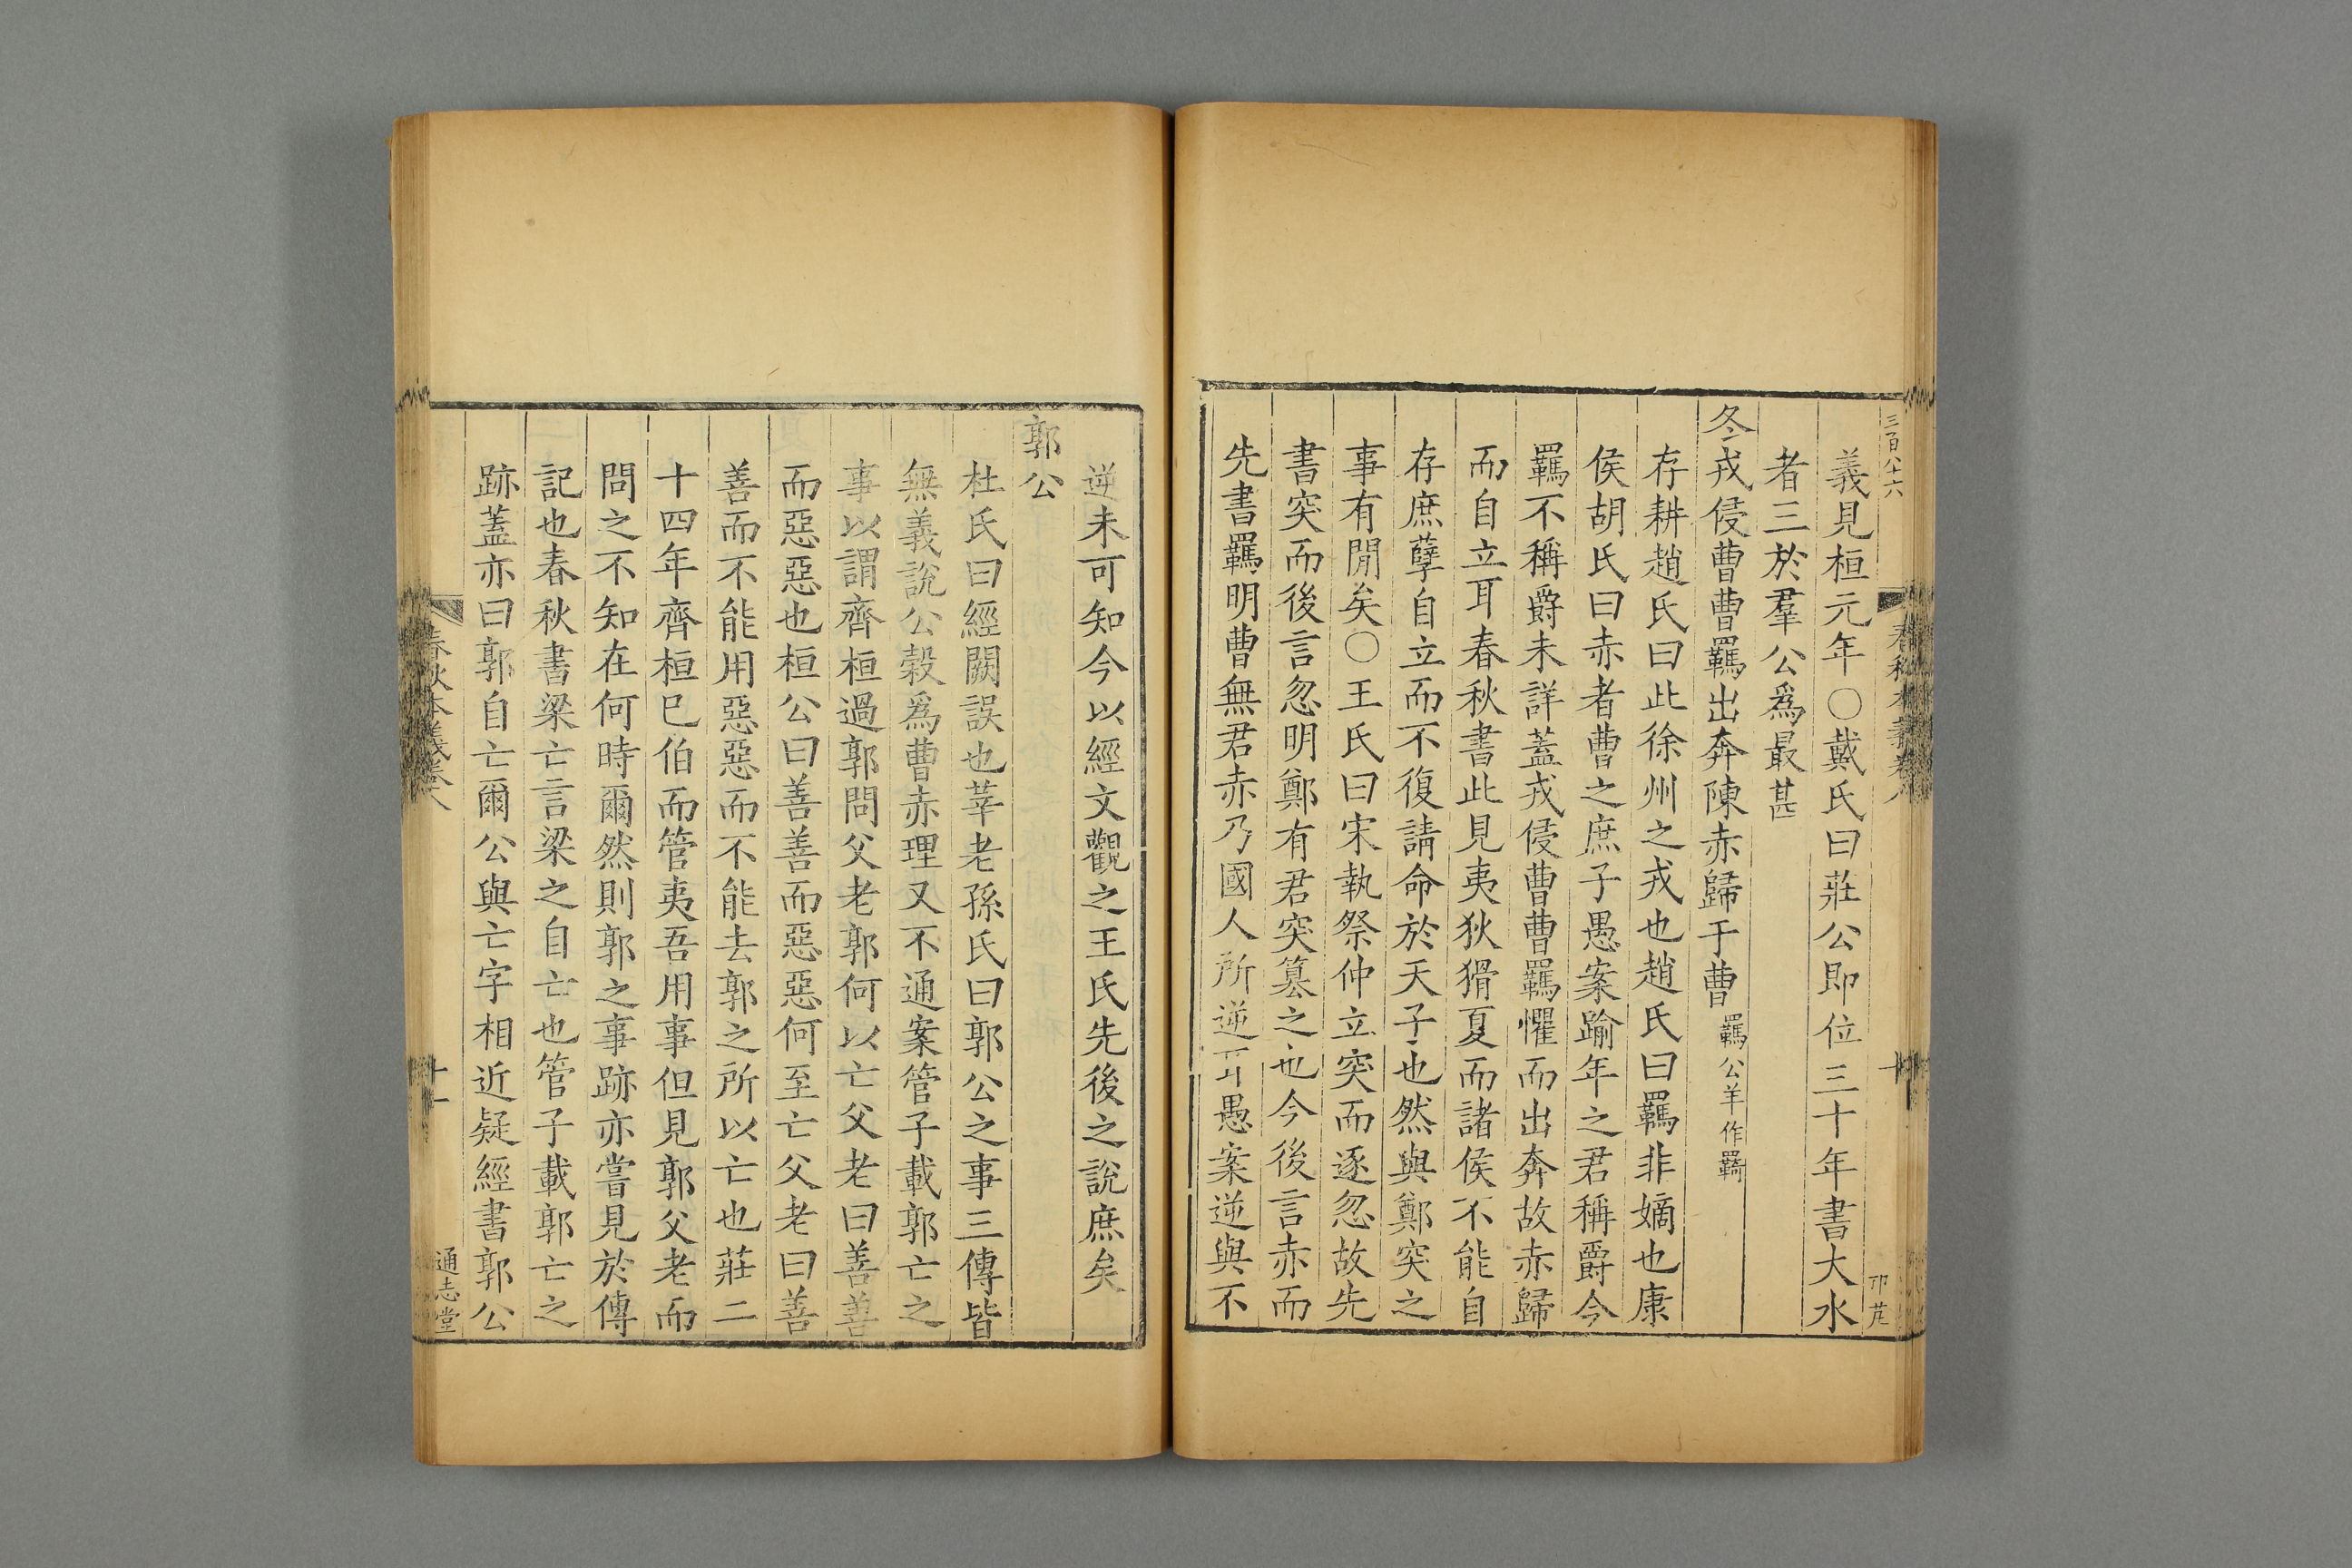 三百八十六
春秋本義卷八
十
義見桓元年○戴氏曰莊公即位三十年書大水
者三於羣公爲最甚
冬戎侵曹曹羈出奔陳赤歸于曹羈公羊作羇
存耕趙氏曰此徐州之戎也趙氏曰羈非嫡也康
侯胡氏曰赤者曹之庶子愚案踰年之君稱爵今
羈不稱爵未詳蓋戎侵曹曹羈懼而出奔故赤歸
而自立耳春秋書此見夷狄猾夏而諸侯不能自
存庶孽自立而不復請命於天子也然與鄭突之
事有閒矣○王氏曰宋執祭仲立突而逐忽故先
書突而後言忽明鄭有君突篡之也今後言赤而
先書羈明曹無君赤乃國人所逆耳愚案逆與不
逆未可知今以經文觀之王氏先後之說庶矣
郭公
杜氏曰經闕誤也莘老孫氏曰郭公之事三傳皆
無義說公穀爲曹赤理又不通案管子載郭亡之
事以謂齊桓過郭問父老郭何以亡父老曰善善
而惡惡也桓公曰善善而惡惡何至亡父老曰善
善而不能用惡惡而不能去郭之所以亡也莊二
十四年齊桓已伯而管夷吾用事但見郭父老而
問之不知在何時爾然則郭之事跡亦嘗見於傳
記也春秋書梁亡言梁之自亡也管子載郭亡之
跡蓋亦曰郭自亡爾公與亡字相近疑經書郭公
春秋本義卷八
十一
通志堂